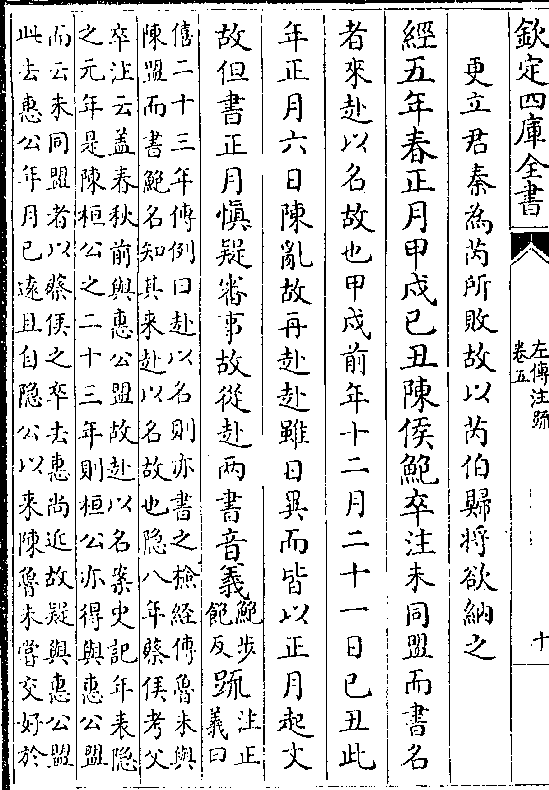 欽定四庫全書
左傳注疏
卷五
十
更立君秦為芮所敗故以芮伯歸將欲納之
經五年春正月甲戌己丑陳侯鮑卒注未同盟而書名
者來赴以名故也甲戌前年十二月二十一日己丑此
年正月六日陳亂故再赴赴雖日異而皆以正月起文
故但書正月慎疑審事故從赴两書音義
鮑步
飽反
疏
注正
義曰
僖二十三年傳例曰赴以名則亦書之檢經傳魯未與
陳盟而書鮑名知其來赴以名故也隐八年蔡侯考父
卒注云盖春秋前與惠公盟故赴以名案史記年表隐
之元年是陳桓公之二十三年則桓公亦得與惠公盟
而云未同盟者以蔡侯之卒去惠尚近故疑與惠公盟
此去惠公年月已逺且自隐公以来陳魯未嘗交好於